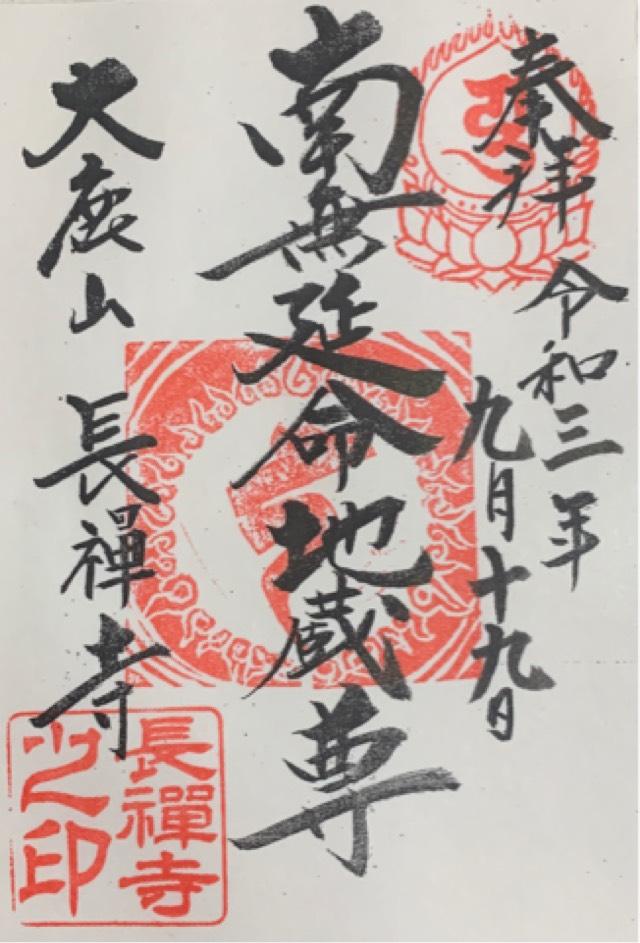 奉拝
令和三年
九月十九日
南無延命地蔵尊
大鹿山 長禪寺
長禪寺
之印